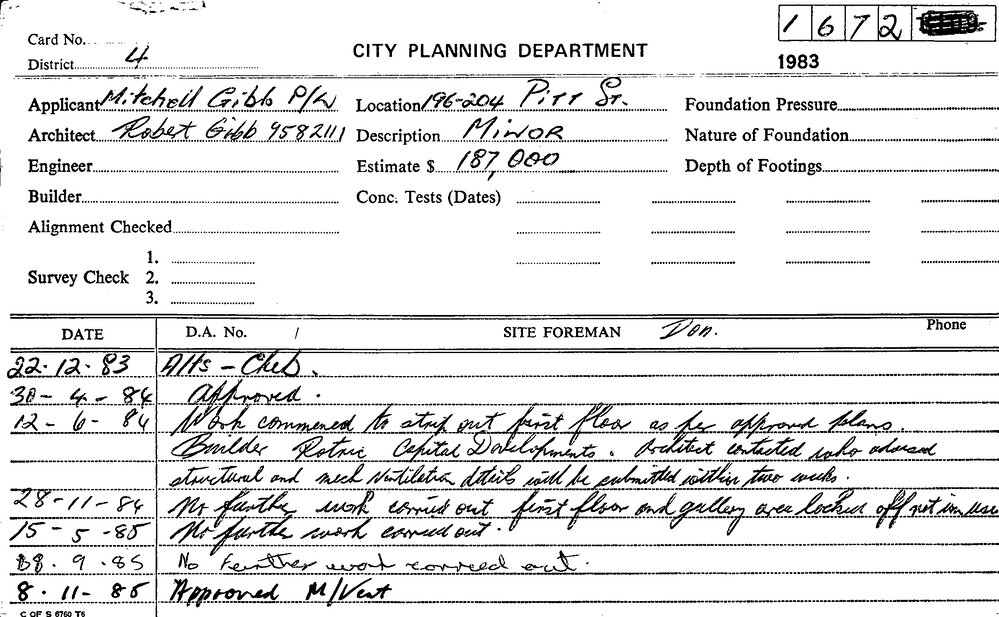 1672
Card No.
District 4
CITY PLANNING DEPARTMENT
1983
Applicant Mitchell Gibb P/L Location 196-204 Pitt St. Foundation Pressure
Architect Robert Gibb 9582111 Description Minor Nature of Foundation
Engineer Estimate $ 187,000 Depth of Footings
Builder Conc. Tests (Dates)
Alignment Checked
1.
Survey Check 2.
3.
DATE D.A. No. / SITE FOREMAN Don. Phone
22.12.83 Alts -
30-4-84 Approved.
12-6-84 Work commenced to strip out first floor as per approved plans.
Builder Capital Developments. Architect contacted who advised
structural and mech ventilation details will be submitted within two weeks.
28-11-84 No further work carried out first floor and gallery area locked off not in use
15-5-85 No further work carried out.
.9.85 No further work carried out.
8.11-85 Approved M/Vent
C OF S 6760 T6